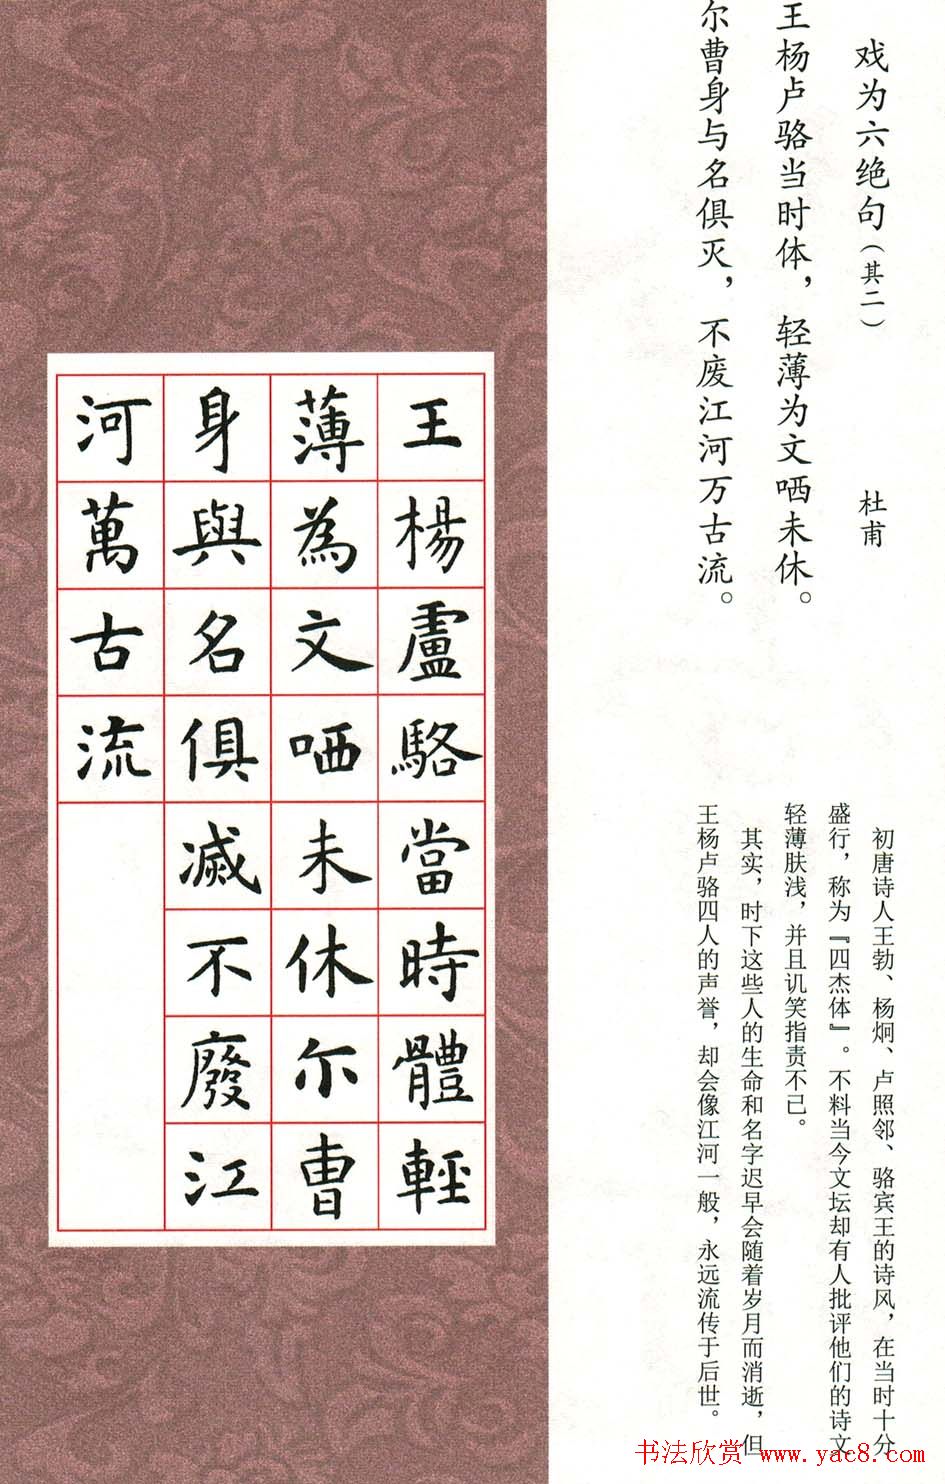 戏为六绝句（其二）
杜甫
王杨卢骆当时体，轻薄为文哂未休。
尔曹身与名俱灭，不废江河万古流。
初唐诗人王勃、杨炯、卢照邻、骆宾王的诗风，在当时十分
盛行，称为『四杰体』。不料当今文坛却有人批评他们的诗文
轻薄肤浅，并且讥笑指责不已。
其实，时下这些人的生命和名字迟早会随着岁月而消逝，但
王杨卢骆四人的声誉，却会像江河一般，永远流传于后世。
王楊盧駱當時體輕
薄為文哂未休尒曹
身與名俱滅不廢江
河萬古流
书法欣赏 www.yac8.com